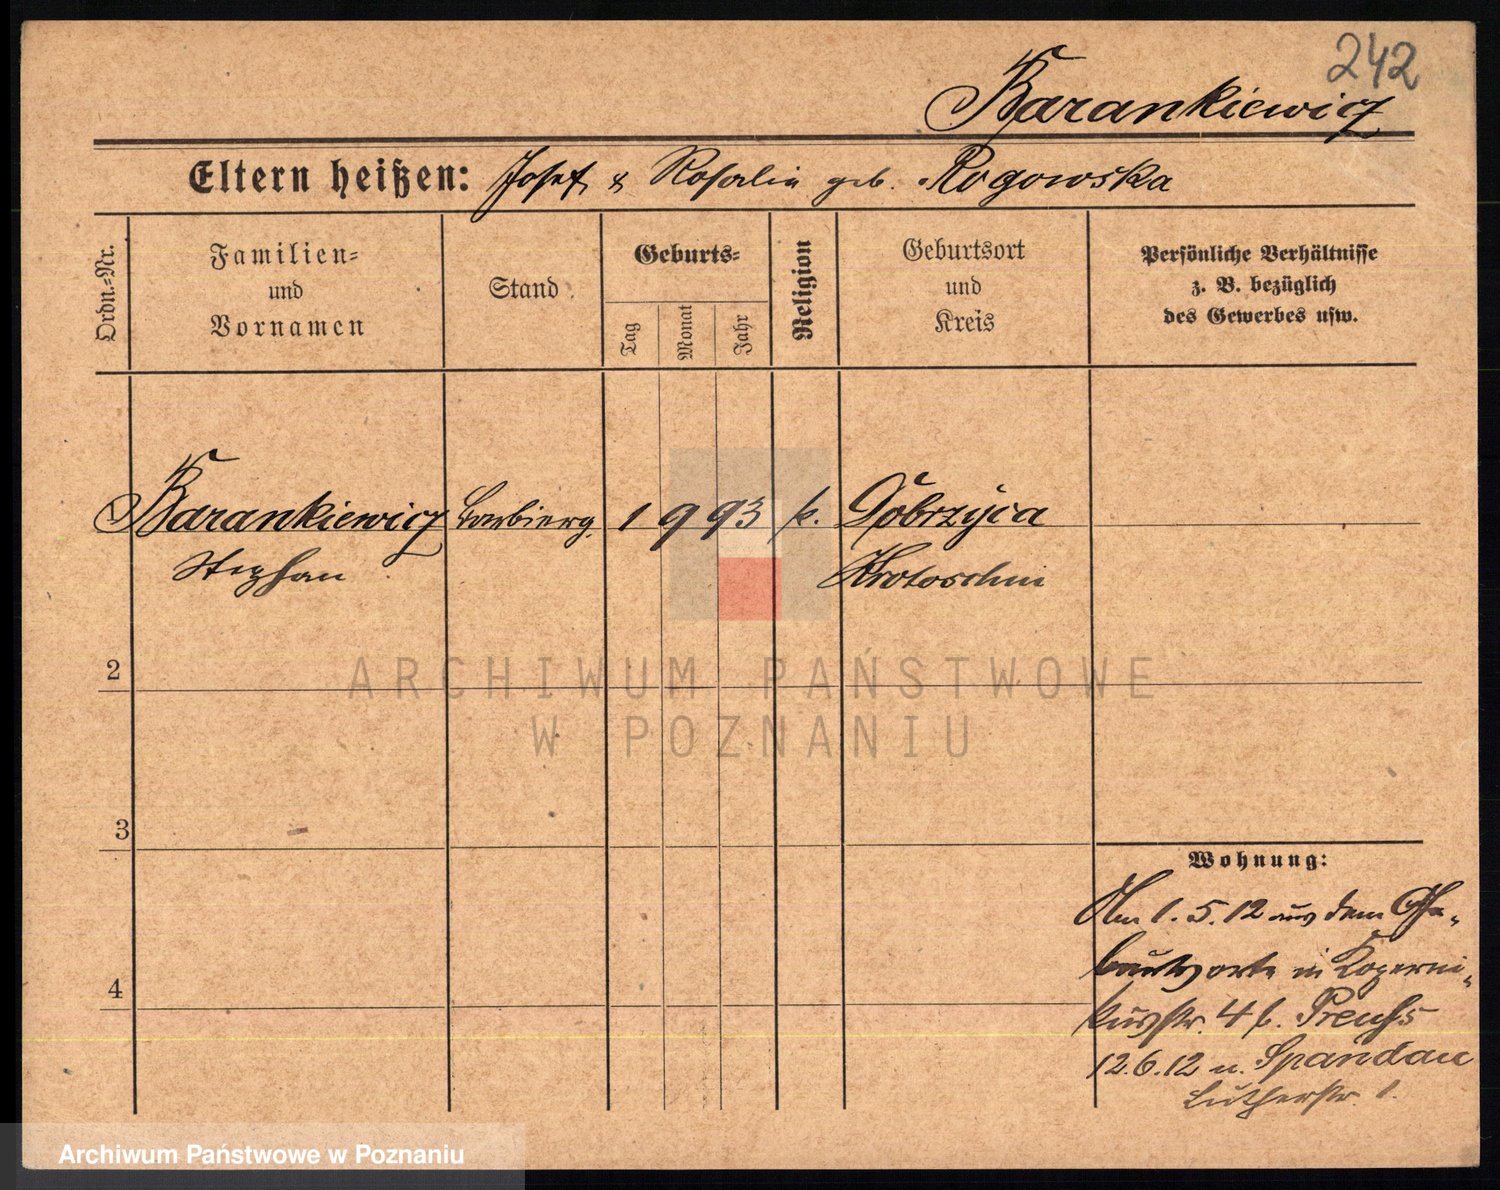 242
Barankiewicz
Eltern heißen: Josef & Rosalia geb. Rogowska
Ordn.-Nr.
Familien-
und
Vornamen
Stand
Geburts-
Tag
Monat
Jahr
Religion
Geburtsort
und
Kreis
Persönliche Verhältnisse
z. B. bezüglich
des Gewerbes usw.
1 Barankiewicz Barbierg. 1 9 93 k. Dobrzyca
Stephan Krotoschin
ARCHIWUM PAŃSTWOWE
W POZNANIU
2
3
4
Wohnung:
Am 1.5.12 aus dem Ge-
burtsorte in Koperni-
kusstr. 4 b. Preuss
12.6.12 n. Spandau
Lutherstr. 1.
Archiwum Państwowe w Poznaniu